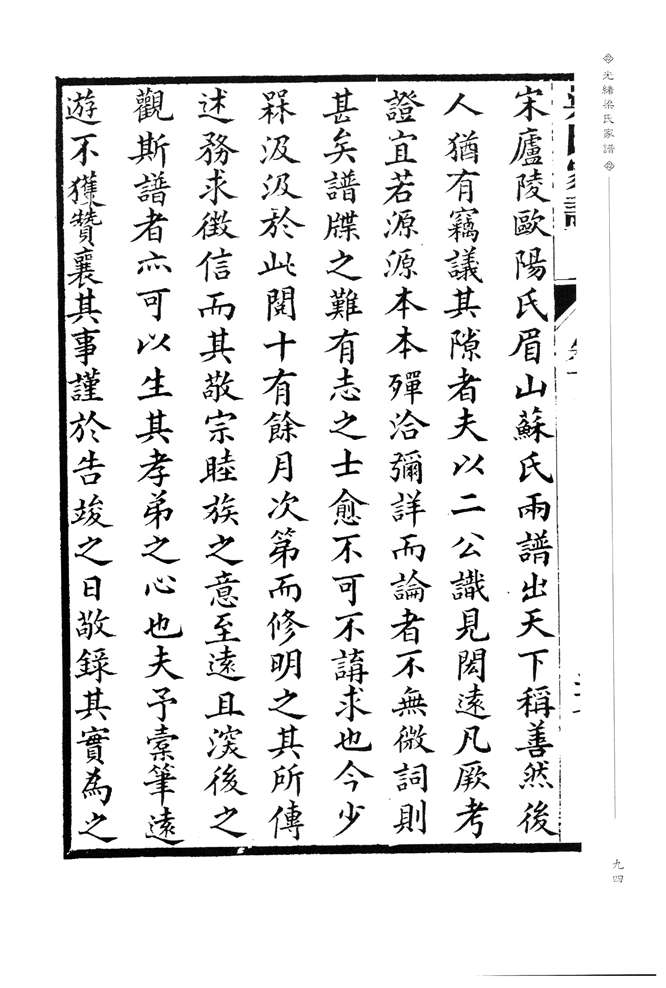 光緒梁氏家譜
宋廬陵歐陽氏眉山蘇氏兩譜出天下稱善然後
人猶有竊議其隙者夫以二公識見閎遠凡厥考
證宜若源源本本殫洽彌詳而論者不無微詞則
甚矣譜牒之難有志之士愈不可不講求也今少
槑汲汲於此閱十有餘月次第而修明之其所傳
述務求徵信而其敬宗睦族之意至遠且深後之
觀斯譜者亦可以生其孝弟之心也夫予橐筆遠
遊不獲贊襄其事謹於告竣之日敬錄其實為之
九四